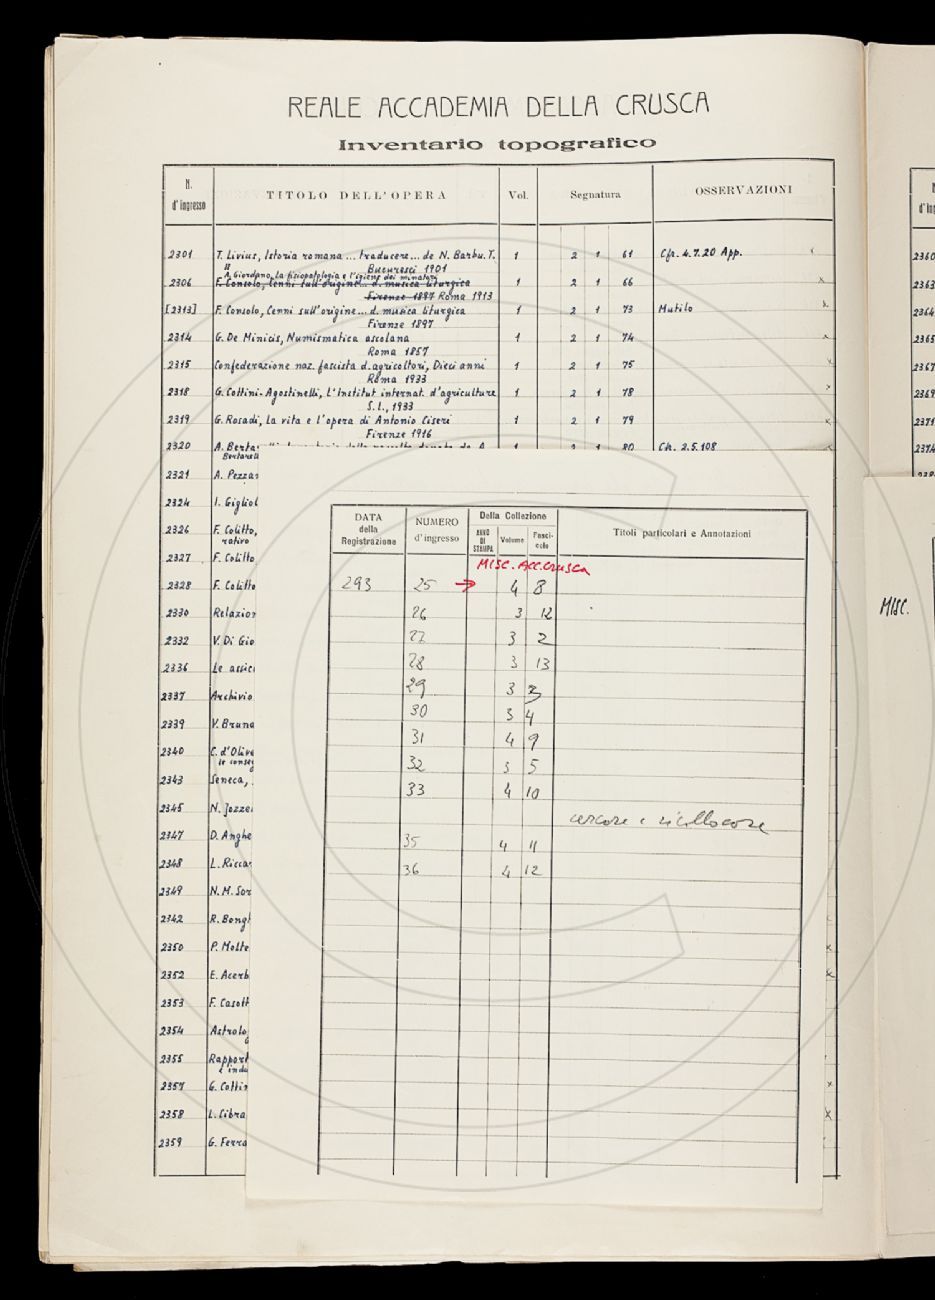 REALE ACCADEMIA DELLA CRUSCA
Inventario topografico
N. d'ingresso TITOLO DELL'OPERA Vol. Segnatura OSSERVAZIONI
2301 T. Livius, Istoria romana... traducere... de N. Barbu. T. 1 2 1 61 Cfr. 4.7.20 App.
II Bucuresci 1901
A. Giordano, La fisiopatologia e l'igiene dei minatori
2306 F. Consolo, Cenni sull'origine... d. musica liturgica 1 2 1 66
Firenze 1897 Roma 1913
[2313] F. Consolo, Cenni sull'origine... d. musica liturgica 1 2 1 73 Mutilo
Firenze 1897
2314 G. De Minicis, Numismatica ascolana 1 2 1 74
Roma 1857
2315 Confederazione naz. fascista d. agricoltori, Dieci anni 1 2 1 75
Roma 1933
2318 G. Cottini-Agostinelli, L'Institut internat. d'agriculture 1 2 1 78
S.l., 1933
2319 G. Rosadi, La vita e l'opera di Antonio Ciseri 1 2 1 79
Firenze 1916
2320 A. Berta 1 2 1 80 Cfr. 2.5.108
Bertarell
2321 A. Pezza
2324 I. Gigliol
2326 F. Colitto,
rativo
2327 F. Colitto
2328 F. Colitto
2330 Relazion
2332 V. Di Gio
2336 Le assic
2337 Archivio
2339 V. Bruna
2340 C. d'Olive
le conseg
2343 Seneca,
2345 N. Jozze
2347 D. Anghe
2348 L. Riccar
2349 N. M. Sor
2342 R. Bongh
2350 P. Molte
2352 E. Acerb
2353 F. Casott
2354 Astrolo
2355 Rapport
e inda
2357 G. Cottin
2358 L. Cibra
2359 G. Ferra
DATA della Registrazione NUMERO d'ingresso Della Collezione ANNO DI STAMPA Volume Fascicolo Titoli particolari e Annotazioni
MISC. ACC. CRUSCA
293 25 → 4 8
26 3 12
27 3 2
28 3 13
29 3 3
30 3 4
31 4 9
32 3 5
33 4 10
cercare e ricollocare
35 4 11
36 4 12
2360
2363
2364
2365
2367
2369
2371
2374
MISC.